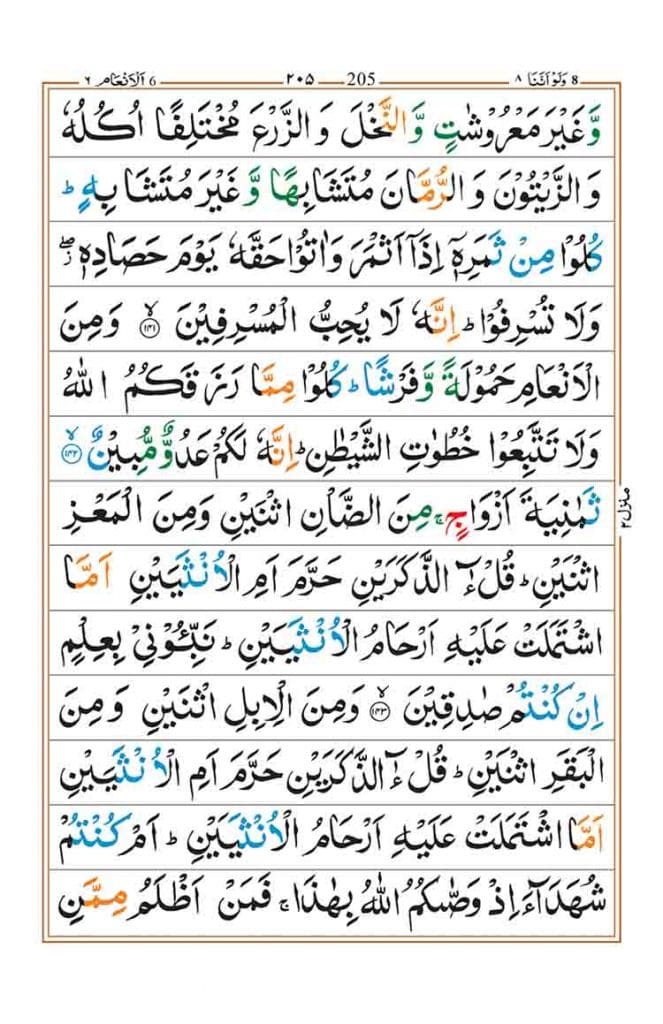 8 وَلَوْ اَنَّنَا ٨ 205 ٢٠٥ 6 اَلْاَنْعَام ٦
وَّغَيْرَ مَعْرُوْشٰتٍ وَّالنَّخْلَ وَالزَّرْعَ مُخْتَلِفًا اُكُلُهٗ
وَالزَّيْتُوْنَ وَالرُّمَّانَ مُتَشَابِهًا وَّغَيْرَ مُتَشَابِهٍؕ
كُلُوْا مِنْ ثَمَرِهٖۤ اِذَاۤ اَثْمَرَ وَاٰتُوْا حَقَّهٗ يَوْمَ حَصَادِهٖ ۖ ز
وَلَا تُسْرِفُوْاؕ اِنَّهٗ لَا يُحِبُّ الْمُسْرِفِيْنَ ۙ﴿١٤١﴾ وَمِنَ
الْاَنْعَامِ حَمُوْلَةً وَّفَرْشًاؕ كُلُوْا مِمَّا رَزَقَكُمُ اللّٰهُ
وَلَا تَتَّبِعُوْا خُطُوٰتِ الشَّيْطٰنِؕ اِنَّهٗ لَكُمْ عَدُوٌّ مُّبِيْنٌ ۙ﴿١٤٢﴾
ثَمٰنِيَةَ اَزْوَاجٍۚ مِنَ الضَّاْنِ اثْنَيْنِ وَمِنَ الْمَعْزِ
اثْنَيْنِؕ قُلْ ءٰٓالذَّكَرَيْنِ حَرَّمَ اَمِ الْاُنْثَيَيْنِ اَمَّا
اشْتَمَلَتْ عَلَيْهِ اَرْحَامُ الْاُنْثَيَيْنِؕ نَبِّـُٔوْنِيْ بِعِلْمٍ
اِنْ كُنْتُمْ صٰدِقِيْنَ ۙ﴿١٤٣﴾ وَمِنَ الْاِبِلِ اثْنَيْنِ وَمِنَ
الْبَقَرِ اثْنَيْنِؕ قُلْ ءٰٓالذَّكَرَيْنِ حَرَّمَ اَمِ الْاُنْثَيَيْنِ
اَمَّا اشْتَمَلَتْ عَلَيْهِ اَرْحَامُ الْاُنْثَيَيْنِؕ اَمْ كُنْتُمْ
شُهَدَآءَ اِذْ وَصّٰىكُمُ اللّٰهُ بِهٰذَاۚ فَمَنْ اَظْلَمُ مِمَّنِ
منزل ٢